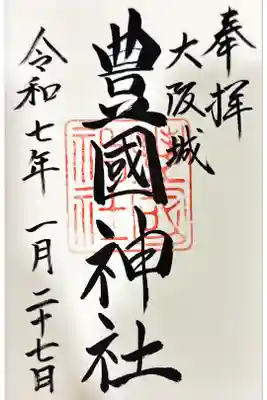 奉拝
大阪城
豊國神社
令和七年一月二十七日